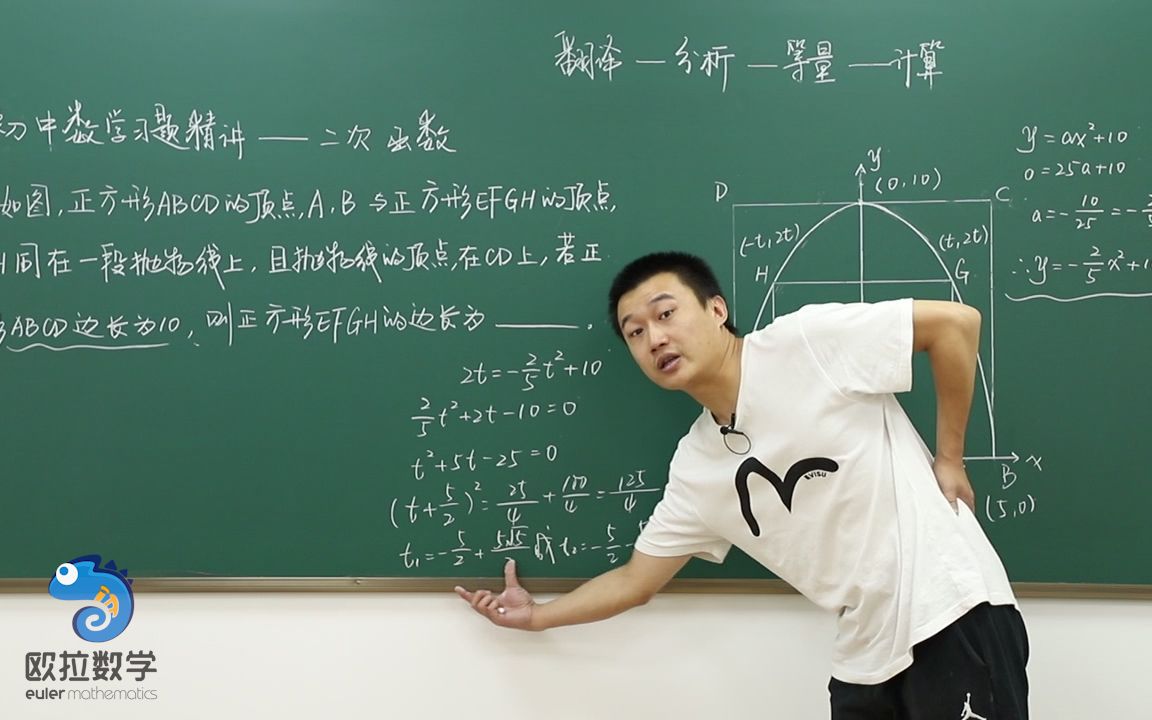 翻译 — 分析 — 等量 — 计算
初中数学习题精讲 — 二次函数
如图,正方形ABCD的顶点,A、B与正方形EFGH的顶点,
H同在一段抛物线上,且抛物线的顶点,在CD上,若正
形ABCD边长为10,则正方形EFGH的边长为 ______.
2t=-2/5t²+10
2/5t²+2t-10=0
t²+5t-25=0
(t+5/2)²=25/4+100/4=125/4
t₁=-5/2+5√5/2或t₂=-5/2-
y
(0,10)
D
C
(-t,2t)
(t,2t)
H
G
x
B
(5,0)
y=ax²+10
0=25a+10
a=-10/25=-
∴y=-2/5x²+1
EVISU
欧拉数学
euler mathematics